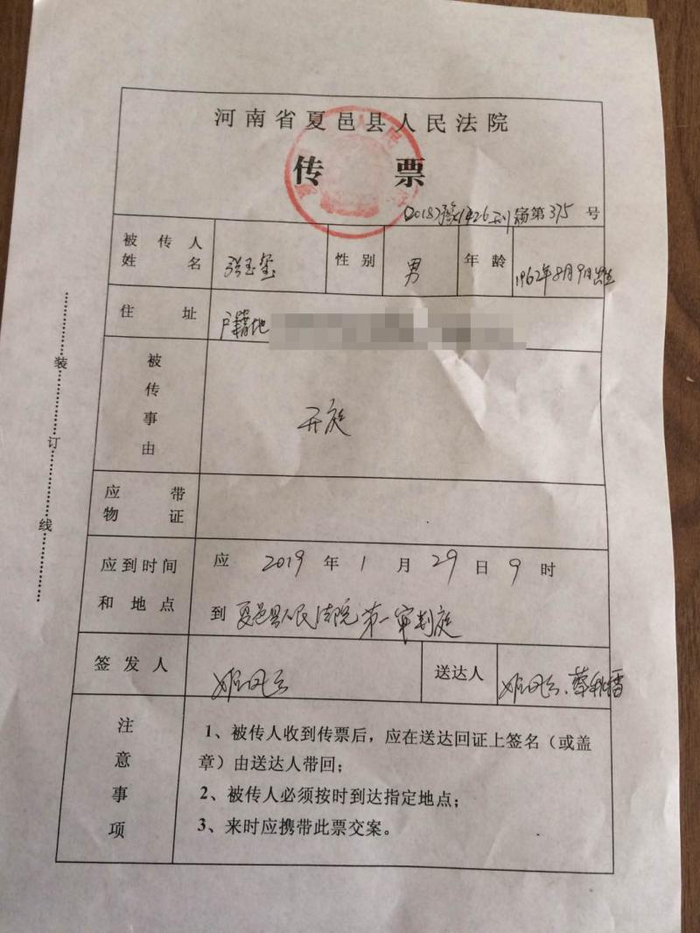 河南省夏邑县人民法院
传 票
(2018)豫1426刑 第375号
被传人姓名 张玉玺 性别 男 年龄 1962年8月9日出生
住址 户籍地
被传事由 开庭
应带物证
应到时间和地点 应 2019 年 1 月 29 日 9 时
到 夏邑县人民法院第一审判庭
签发人 姬风云 送达人 姬风云、
注意事项
1、被传人收到传票后,应在送达回证上签名(或盖
章)由送达人带回;
2、被传人必须按时到达指定地点;
3、来时应携带此票交案。
装
订
线